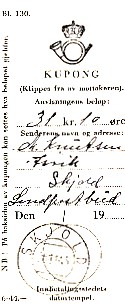 Bl. 130.
KUPONG
(Klippes fra av mottokeren).
Anvisningens beløp:
31 kr. 10 øre
Senderens navn og adresse:
Knutsen
Skjold
Landpostbud
Den 19
SKJOLD
Innbetalingsstedets
datostempel.
6-44.
NB. På baksiden av kupongen kan seres hva beløpet gjelder.